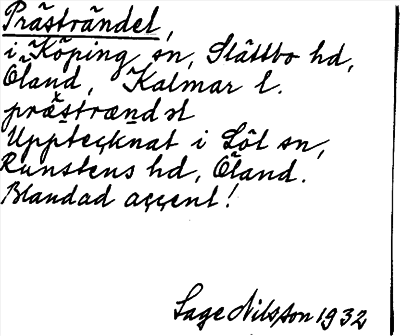 Prästrändel,
i Köping sn, Slättbo hd,
Öland, Kalmar l.
præstrænd𝑠l
Upptecknat i Löt sn,
Runstens hd, Öland.
Blandad accent!
Sage Nilsson 1932